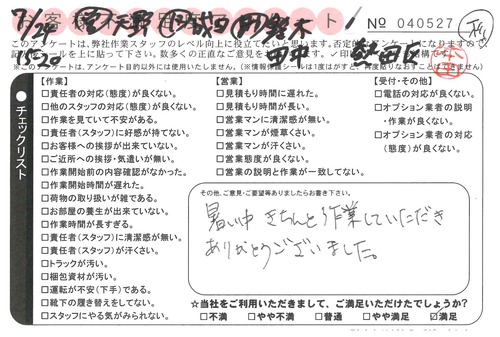 7/24
15:30
No 040527
このアンケートは、弊社作業スタッフのレベル向上に役立てたいと思います。
※このアンケートは、アンケート目的以外には使用いたしません。
チェックリスト
【作業】
□責任者の対応(態度)が良くない。
□他のスタッフの対応(態度)が良くない。
□作業を見ていて不安がある。
□責任者(スタッフ)に好感が持てない。
□お客様への挨拶が出来ていない。
□ご近所への挨拶・気遣いが無い。
□作業開始前の内容確認がなかった。
□作業開始時間が遅れた。
□荷物の取り扱いが雑である。
□お部屋の養生が出来ていない。
□作業時間が長すぎる。
□責任者(スタッフ)に清潔感が無い。
□責任者(スタッフ)が汗くさい。
□トラックが汚い。
□梱包資材が汚い。
□運転が不安(下手)である。
□靴下の履き替えをしてない。
□スタッフにやる気がみられない。
【営業】
□見積もり時間に遅れた。
□見積もり時間が長い。
□営業マンに清潔感が無い。
□営業マンが煙草くさい。
□営業マンが汗くさい。
□営業態度が良くない。
□営業の説明と作業が一致してない。
【受付・その他】
□電話の対応が良くない。
□オプション業者の説明
・作業が良くない。
□オプション業者の対応
(態度)が良くない。
その他、ご意見・ご要望等ありましたらお書き下さい。
暑い中 きちんと作業していただき
ありがとうございました。
☆当社をご利用いただきまして、ご満足いただけたでしょうか?
□不満 □やや不満 □普通 □やや満足 ☑満足